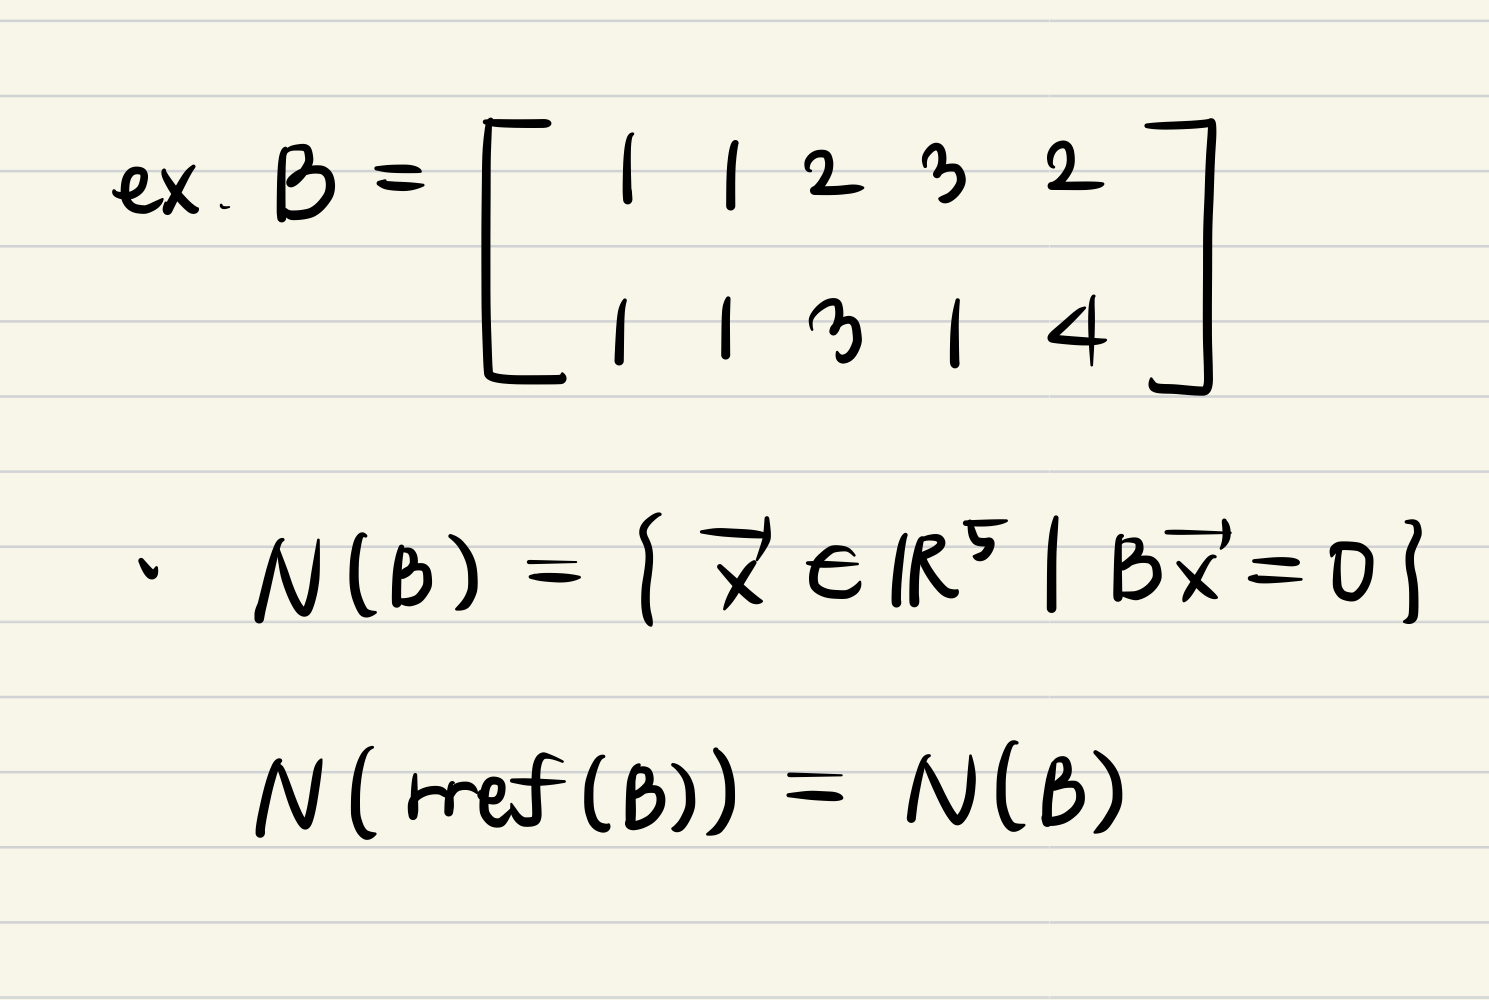 ex. B = [ 1 1 2 3 2
1 1 3 1 4 ]
• N(B) = { x⃗ ∈ ℝ⁵ | Bx⃗ = 0 }
N(rref(B)) = N(B)